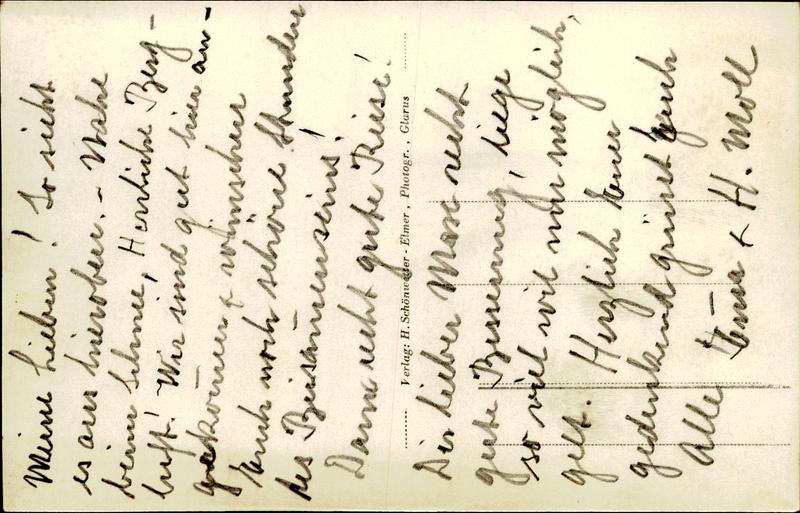 Meine Lieben! So sieht
es aus hieroben. - Nahe
beim Schnee, Herrliche Berg-
luft! Wir sind gut hier an-
gekommen & wünschen
Euch noch schöne Stunden
des Beisammenseins!
Dann recht gute Reise!
Verlag: H. Schönwetter-Elmer, Photogr., Glarus
Dir lieber Max recht
gute Besserung, liege
so viel wie nur möglich,
gelt. Herzlich Euer
gedenkend grüsst Euch
Alle & H. Moll